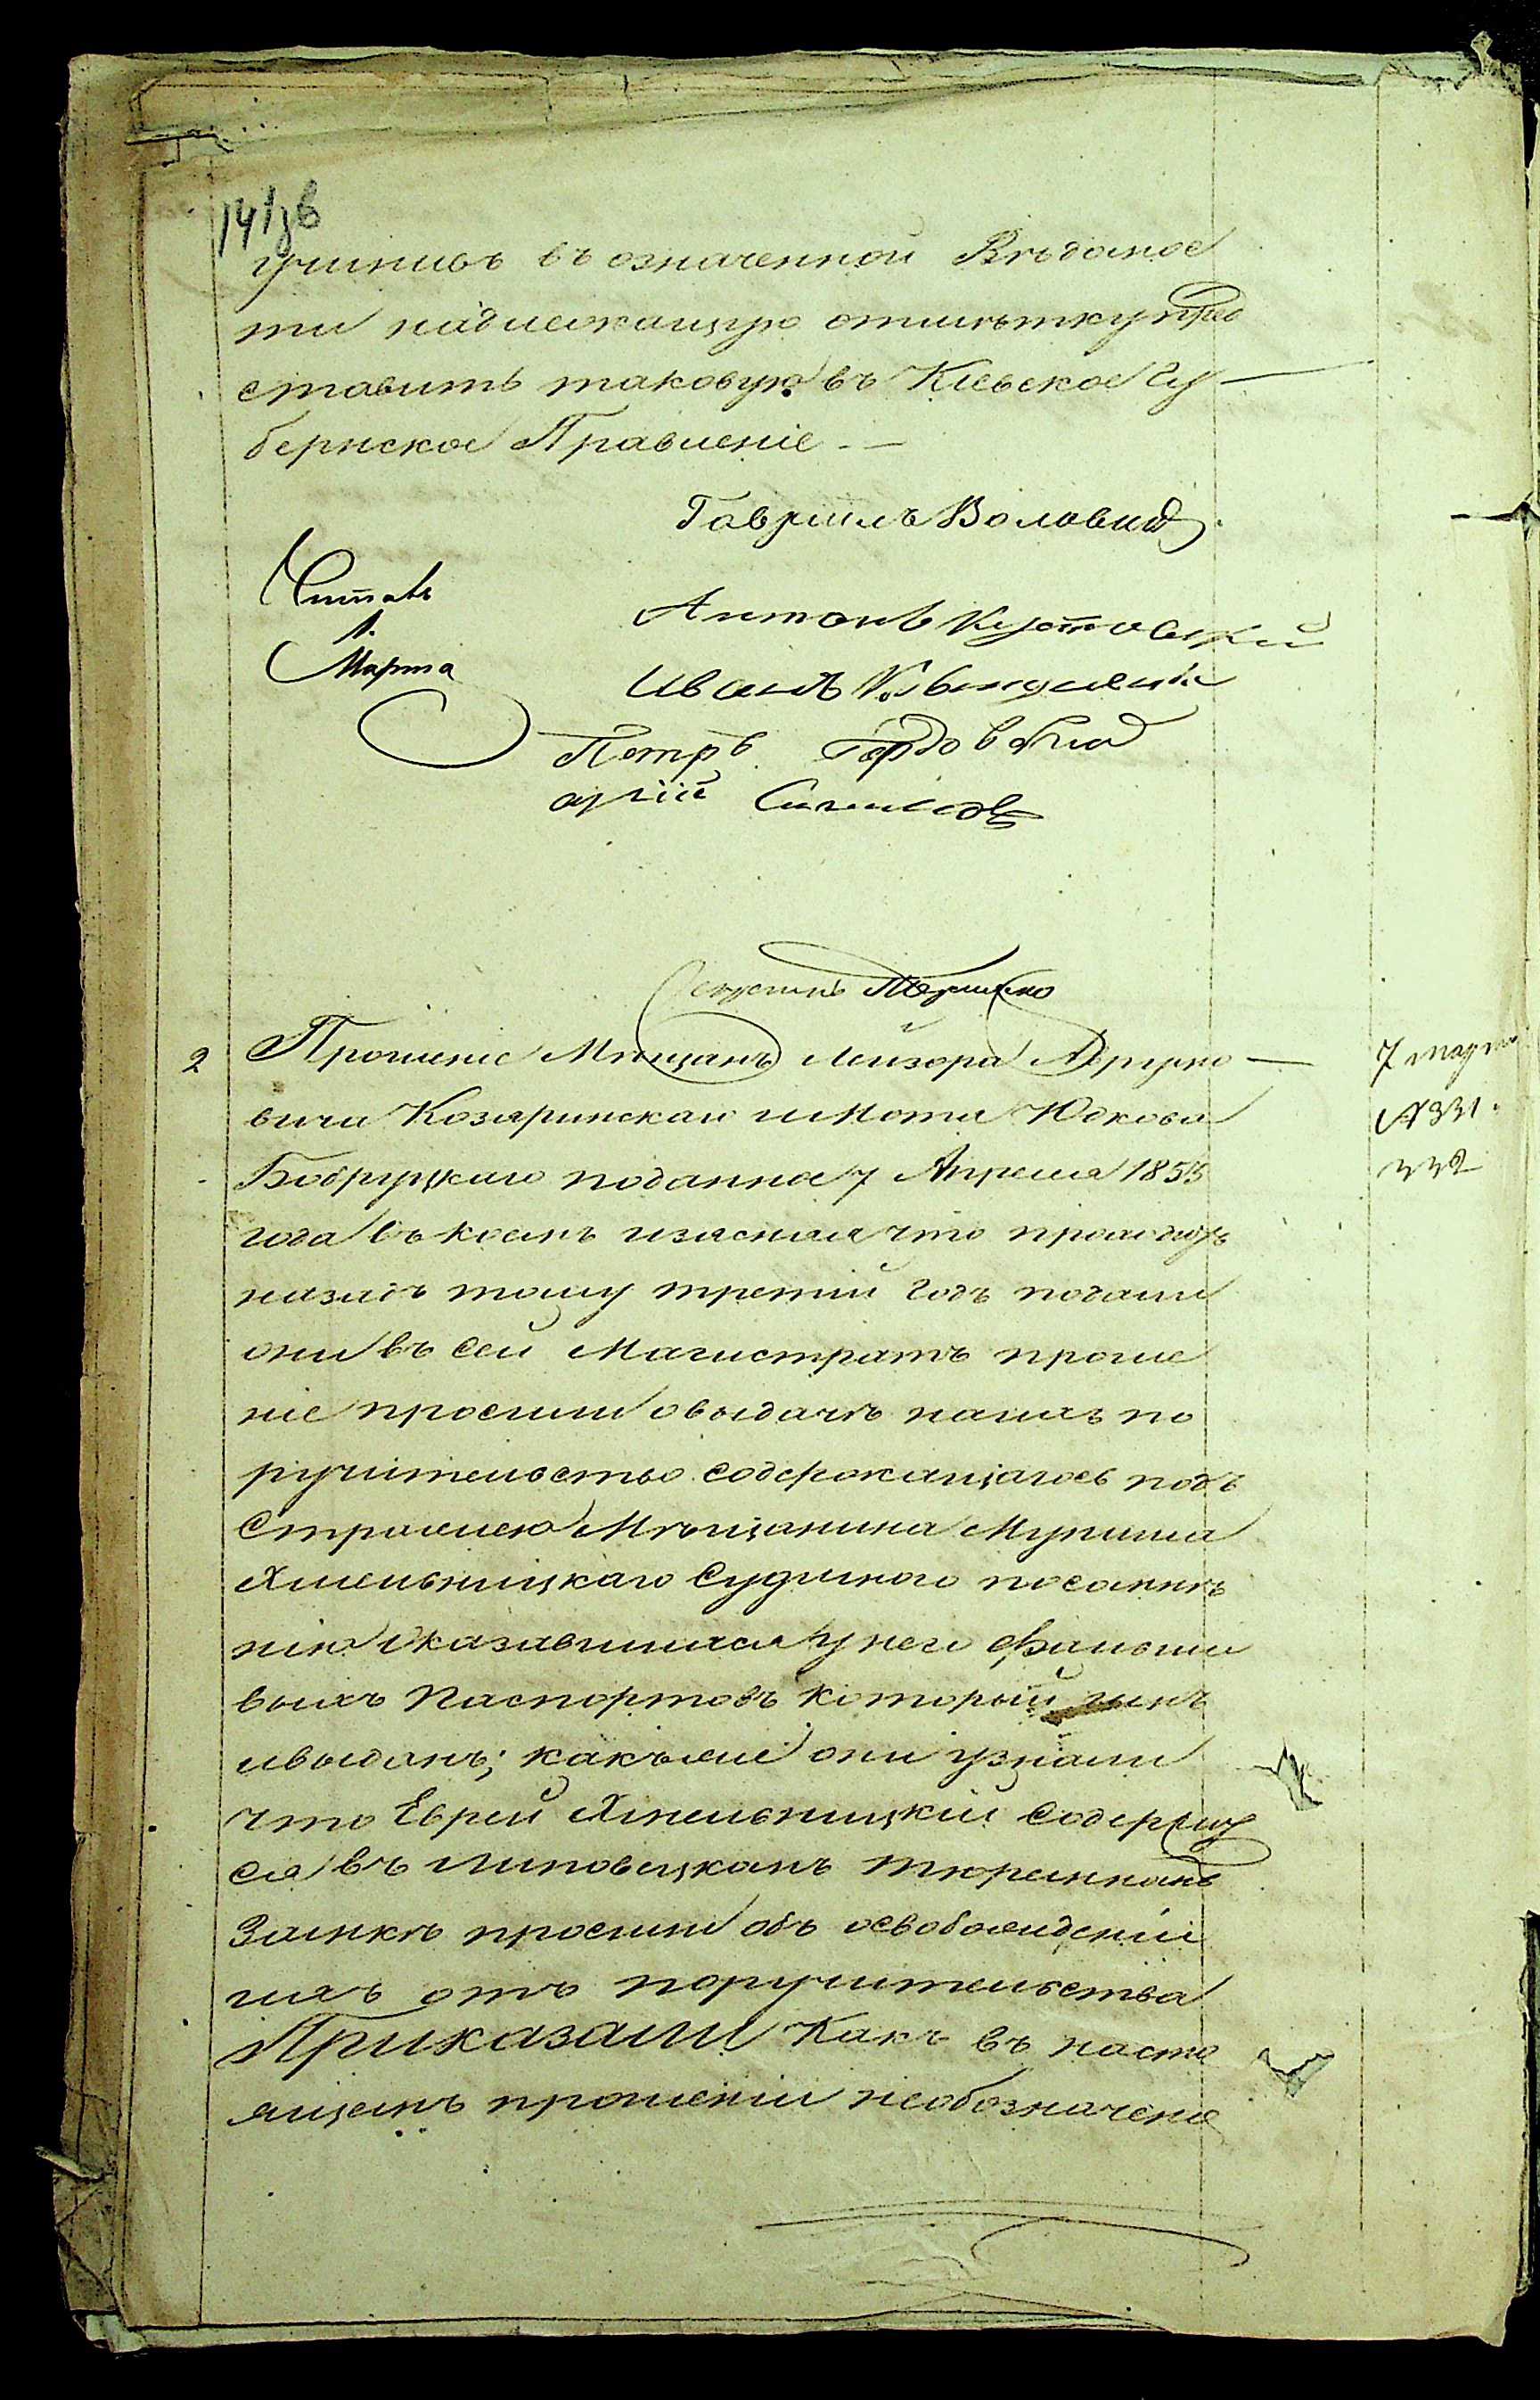 141зв
учинивъ въ означенной Вѣдомос
ти надлежащую отмѣтку пред
ставить таковую въ Кіевское Гу
бернское Правленіе
Гавріилъ
Читалъ
1.
Марта
Антонъ
Иванъ
Петръ
Секретарь
2 Прошеніе Мѣщанъ Лейзора
вича Козаринскаго и Мошка Юдкова
Бобруцкаго поданное 7 Апреля 1855
года въ коемъ изъясняя что
назадъ тому третій годъ подали
они въ сей Магистратъ проше
ніе просили о выдачѣ на ихъ по
ручительство содержащагось подъ
Стражею Мѣщанина
Хмельницкаго Судимого по
нію оказавшихся у него фальши
выхъ Паспортовъ который имъ
и выданъ; какъ же они узнали
что Еврей Хмельницкій содержит
ся въ Липовецкомъ тюремномъ
Замкѣ просили объ освобожденіи
ихъ отъ поручительства
Приказали Какъ въ насто
ящемъ прошеніи необозначено
7 марта
№ 331.
332